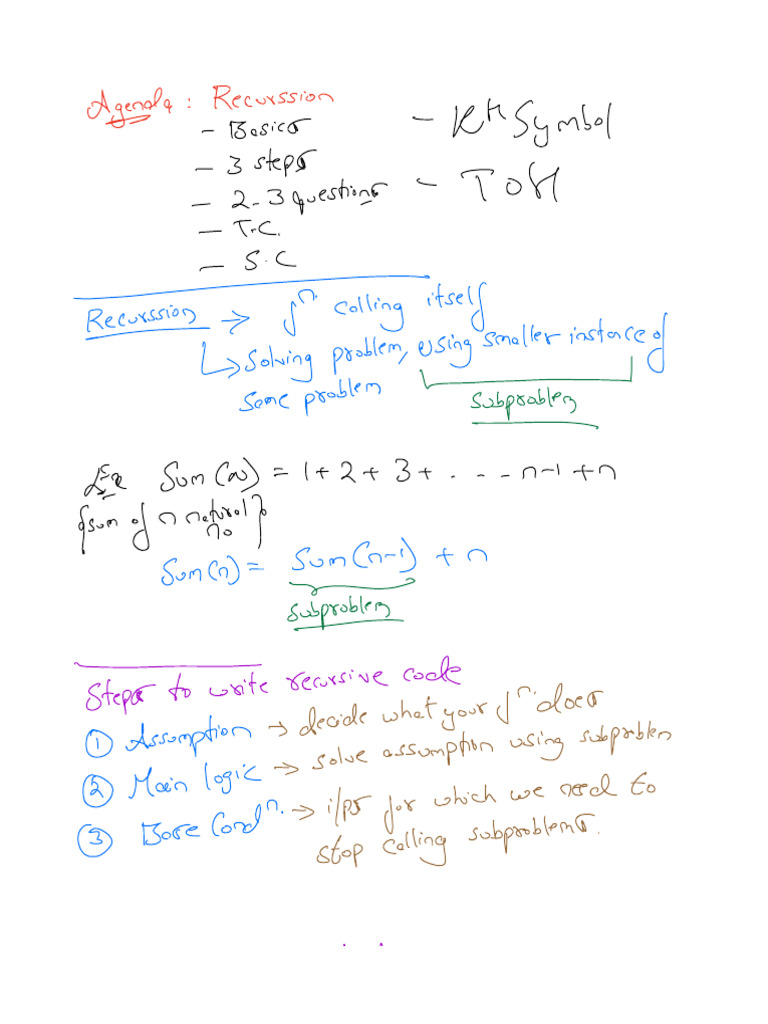 Agenda : Recurssion
- Basics
- 3 steps
- 2-3 questions
- T.C.
- S.C
- Kth Symbol
- TOH
Recurssion → fn. calling itself
↳ Solving problem, using smaller instance of
same problem
subproblem
Ex Sum(n) = 1 + 2 + 3 + . - - - n-1 + n
{sum of n natural no}
Sum(n) = Sum(n-1) + n
subproblem
Steps to write recursive code
① Assumption → decide what your fn. does
② Main logic → solve assumption using subproblem
③ Base Condn. → i/ps for which we need to
stop calling subproblems.